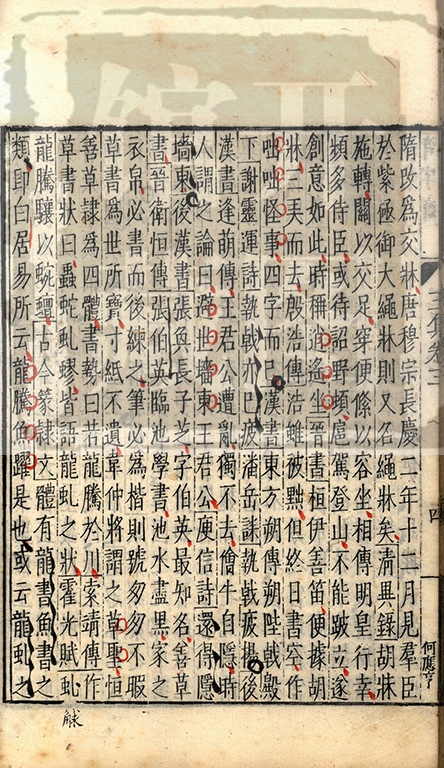 隋改爲交牀唐穆宗長慶二年十二月見羣臣
於紫極御大繩牀則又名繩牀矣清異錄胡牀
施轉關以交足穿便絛以容坐相傳明皇行幸
頻多侍臣或待詔野頓扈駕登山不能跛立遂
創意如此時稱逍遙坐晉書桓伊善笛便據胡
牀三弄而去殷浩傳浩雖被黜但終日書空作
咄咄怪事四字而已漢書東方朔傳朔陛戟殿
下謝靈運詩執戟亦已疲潘岳詠執戟疲楊後
漢書逢萌傳王君公遭亂獨不去儈牛自隱時
人謂之論曰避世墻東王君公庾信詩還得隱
墻東後漢書張奐長子芝字伯英最知名善草
書晉衛恒傳張伯英臨池學書池水盡黑家之
衣帛必書而後練之筆必爲楷則號匆匆不暇
草書爲世所寶寸紙不遺草仲將謂之草聖恒
善草隸爲四體書勢曰若龍騰於川索靖傳作
草書狀曰蟲蛇虬蟉皆語龍虬之狀霍光賦虬
龍騰驤以蜿蟺古今篆隸文體有龍書魚書之
類印白居易所云龍騰魚躍是也或云龍虬之
四
何應亨